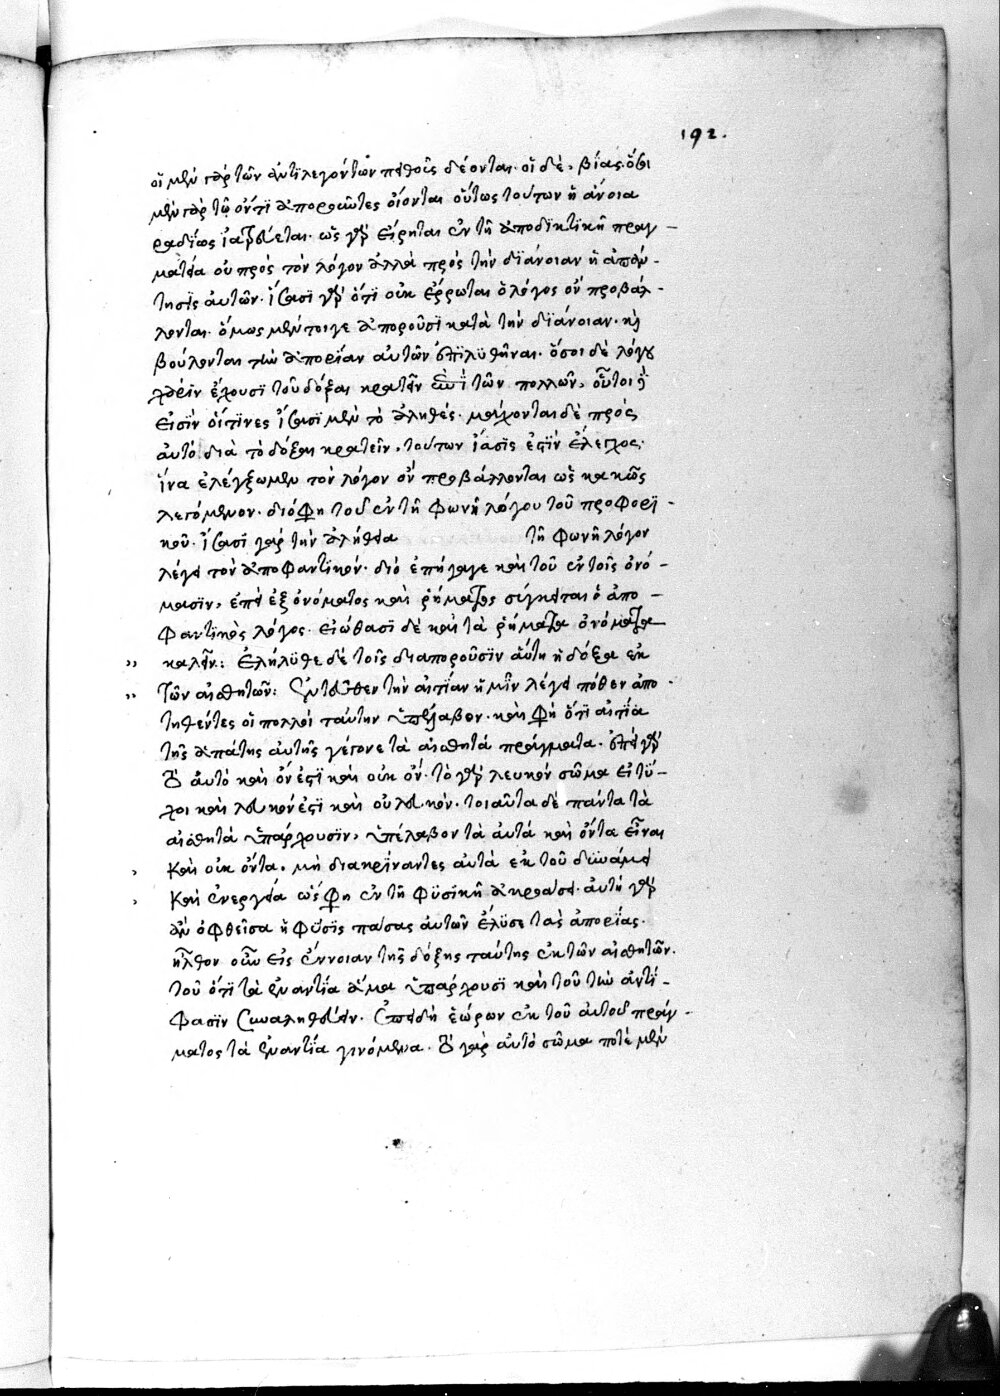 192.
οἱ μὲν γὰρ τῶν ἀντιλεγόντων πειθοῦς δέονται· οἱ δὲ, βίας· ὅσοι
μὲν γὰρ τῷ ὄντι ἀποροῦντες οἴονται οὕτως τούτων ἡ ἄνοια
ῥαδίως ἰατρεύεται· ὡς γὰρ εἴρηται ἐν τῇ ἀποδεικτικῇ πραγ-
ματεία οὐ πρὸς τὸν λόγον ἀλλὰ πρὸς τὴν διάνοιαν ἡ ἀπάν-
τησις αὐτῶν· ἴσασι γὰρ ὅτι οὐκ ἔρρωται ὁ λόγος ὃν προβάλ-
λονται· ὅμως μέντοιγε ἀποροῦσι κατὰ τὴν διάνοιαν· καὶ
βούλονται τὴν ἀπορίαν αὐτῶν ἐπιλυθῆναι· ὅσοι δὲ λόγου
χάριν ἔχουσι τοῦ δόξαι κρατεῖν ἐπὶ τῶν πολλῶν, οὗτοι
εἰσὶν οἵτινες ἴσασι μὲν τὸ ἀληθές· μάχονται δὲ πρὸς
αὐτὸ διὰ τὸ δόξαι κρατεῖν, τούτων ἴασις ἐστὶν ἔλεγχος·
ἵνα ἐλέγξωμεν τὸν λόγον ὃν προβάλλονται ὡς κακῶς
λεγόμενον· διό φησι τοῦ ἐν τῇ φωνῇ λόγου τοῦ προφορι-
κοῦ· ἴσασι γὰρ τὴν ἀλήθεια τῇ φωνῇ λόγον
λέγει τὸν ἀποφαντικόν· διὸ ἐπήγαγε καὶ τοῦ ἐν τοῖς ὀνό-
μασιν, ἐπεὶ ἐξ ὀνόματος καὶ ῥήματος σύγκειται ὁ ἀπο-
φαντικὸς λόγος· εἰώθασι δὲ καὶ τὰ ῥήματα ὀνόματα
" καλεῖν: Ἐλήλυθε δὲ τοῖς διαποροῦσιν αὕτη ἡ δόξα ἐκ
" τῶν αἰσθητῶν: Ἐντεῦθεν τὴν αἰτίαν ἡμῖν λέγει πόθεν ἀπα-
τηθέντες οἱ πολλοὶ ταύτην ὑπέλαβον· καὶ φησὶ ὅτι αἰτία
τῆς ἀπάτης αὐτῆς γέγονε τὰ αἰσθητὰ πράγματα· ἐπεὶ γὰρ
τὸ αὐτὸ καὶ ὄν ἐστι καὶ οὐκ ὄν· τὸ γὰρ λευκὸν σῶμα εἰ τύ-
χοι καὶ λευκόν ἐστι καὶ οὐ λευκόν· τοιαῦτα δὲ πάντα τὰ
αἰσθητὰ ὑπάρχουσιν, ὑπέλαβον τὰ αὐτὰ καὶ ὄντα εἶναι
, καὶ οὐκ ὄντα, μὴ διακρίναντες αὐτὰ ἐκ τοῦ δυνάμει
, καὶ ἐνεργεία ὥς φησι ἐν τῇ φυσικῇ ἀκροάσει· αὐτὴ γὰρ
ἂν ὀφθεῖσα ἡ φύσις πάσας αὐτῶν ἔλυσε τὰς ἀπορίας·
ἦλθον οὖν εἰς ἔννοιαν τῆς δόξης ταύτης ἐκ τῶν αἰσθητῶν·
τοῦ ὅτι τὰ ἐναντία ἅμα ὑπάρχουσι καὶ τοῦ τὴν ἀντί-
φασιν συναληθεύειν· Ἐπειδὴ ἑώρων ἐκ τοῦ αὐτοῦ πράγ-
ματος τὰ ἐναντία γινόμενα· τὸ γὰρ αὐτὸ σῶμα ποτὲ μὲν